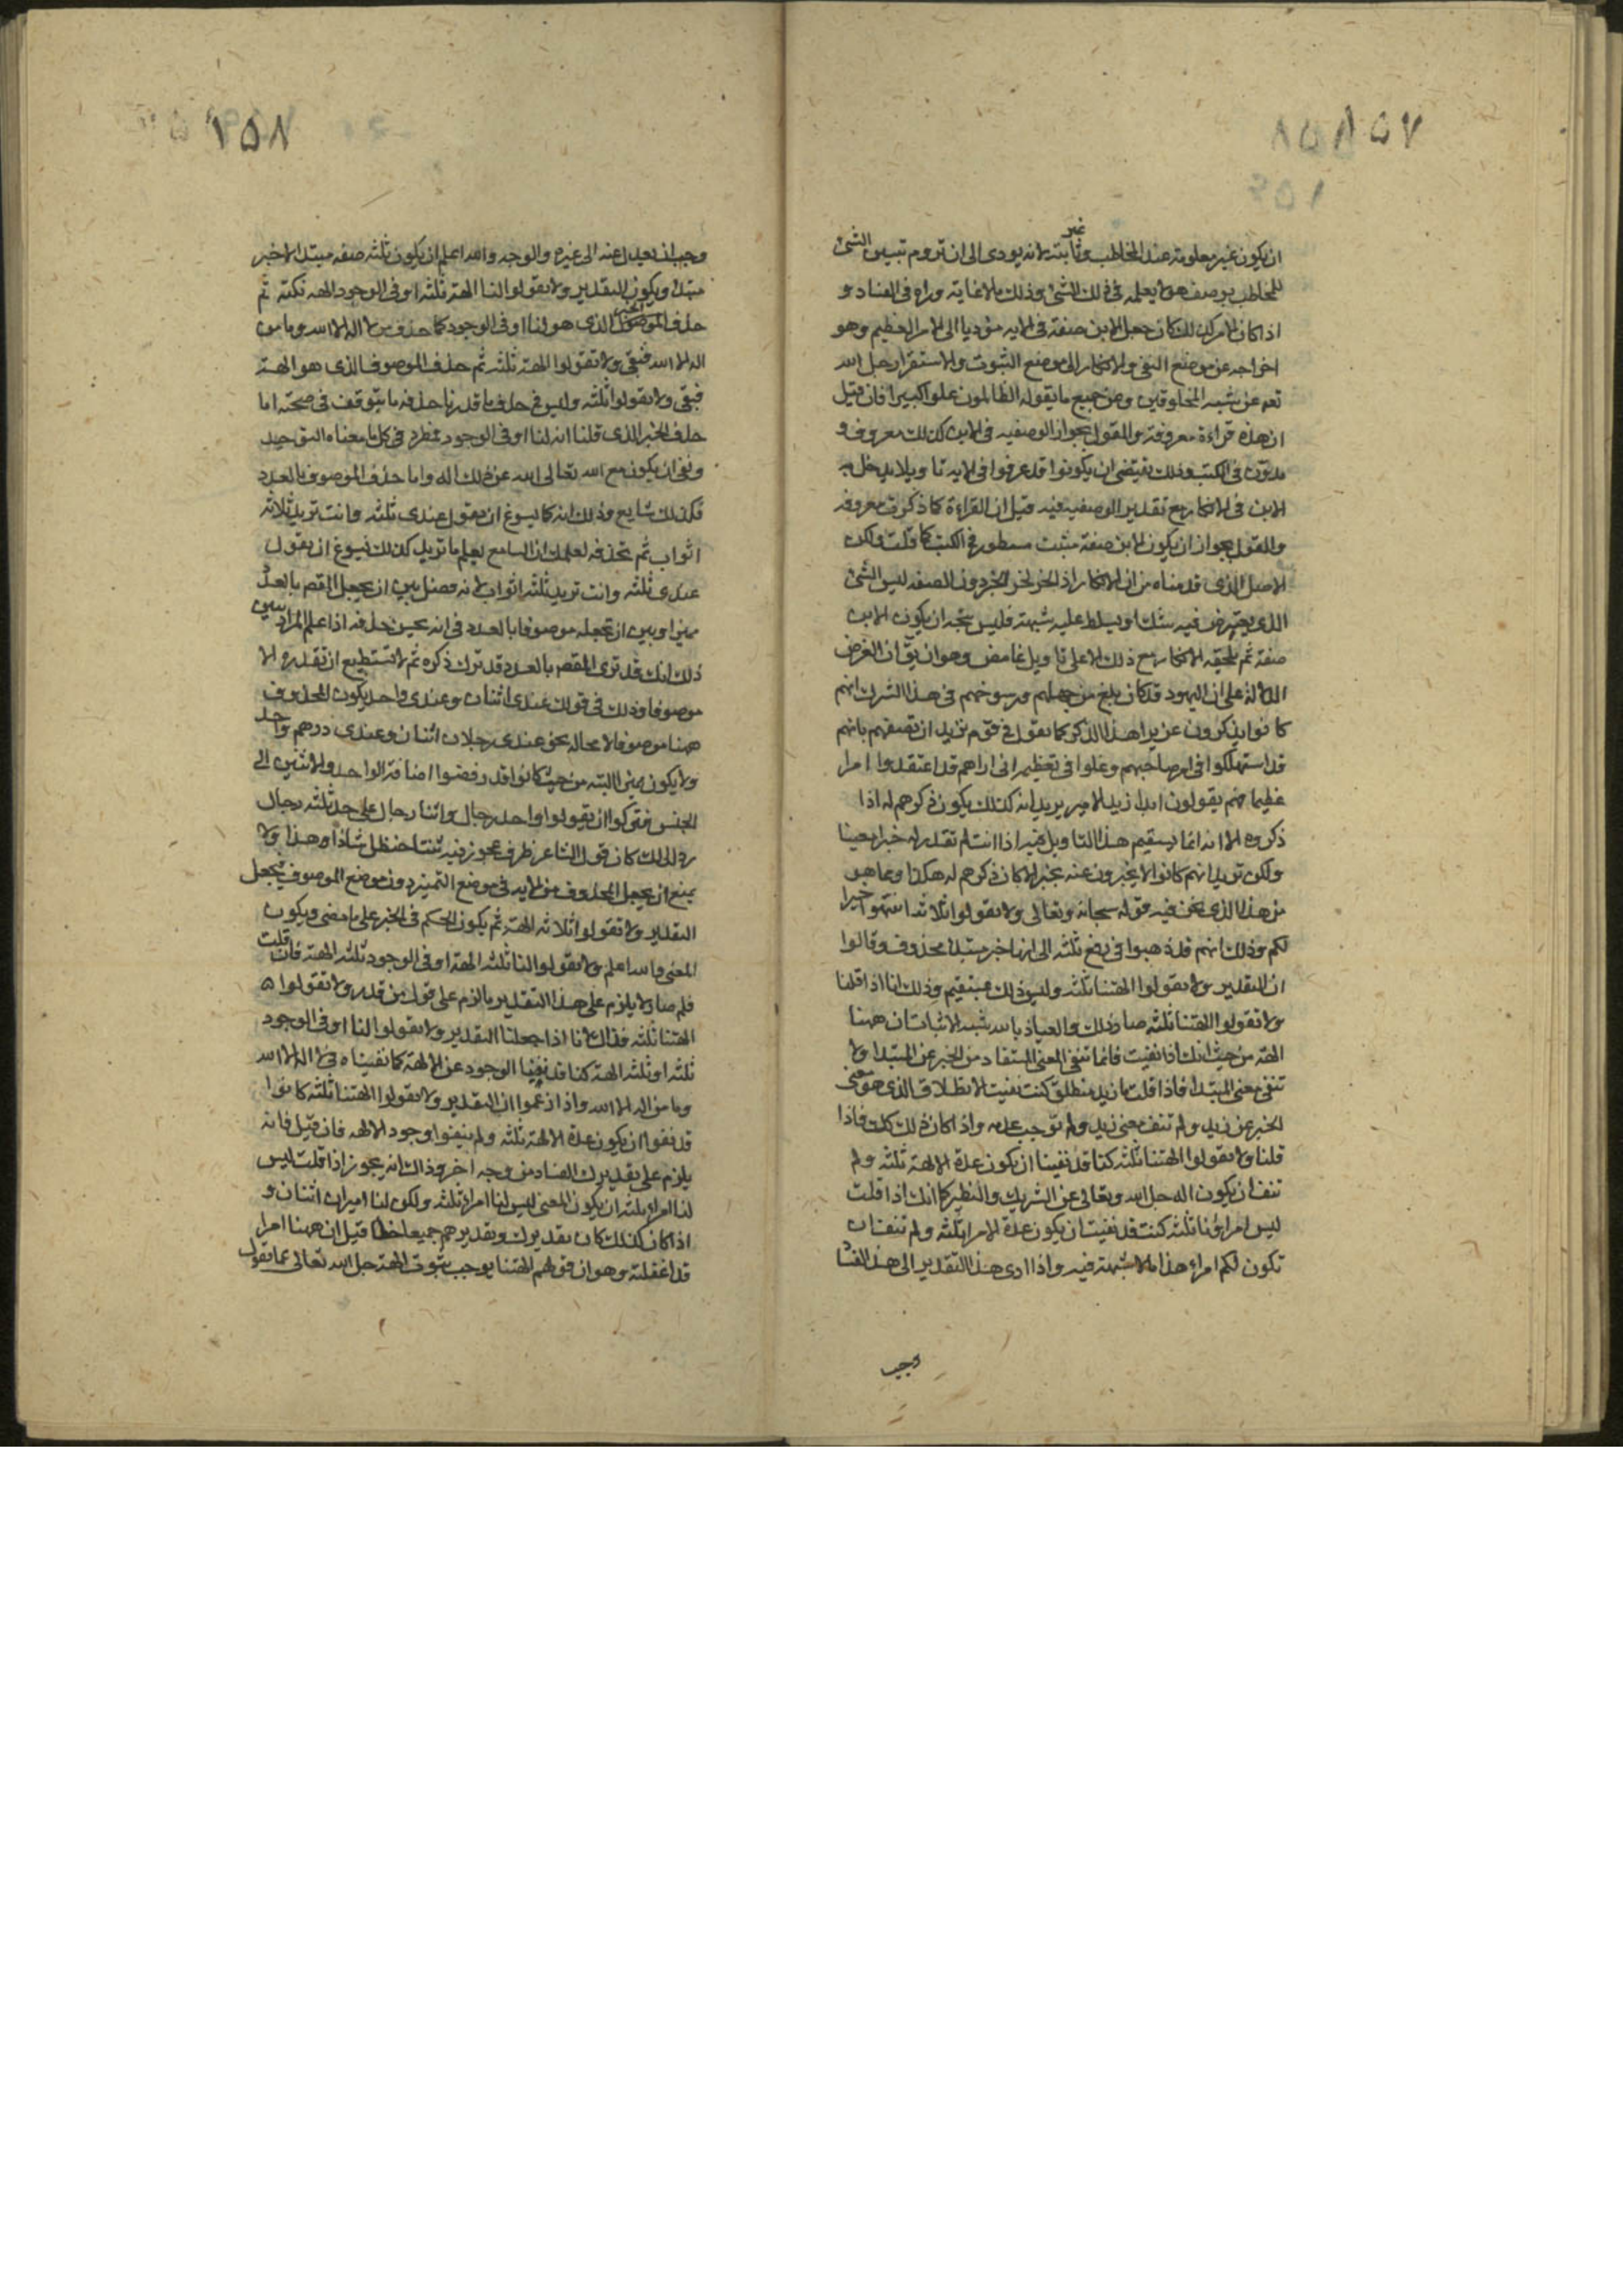 ١٥٧
ان يكون غير معلومة عند المخاطب وغير ثابتة لانه يودى الى ان تروم تبيين الشئ
للمخاطب بوصف هو لا يعلمه فى ذلك الشئ وذلك ما لا غاية وراه فى الفساد و
اذا كان الامر كذلك كان جعل الابن صفة فى الايه مؤديا الى الامر العظيم وهو
اخراجه عن موضع النفى والانكار الى موضع الثبوت والاستقرار جل الله
تعه عن شبه المخلوقين وعن جميع ما يقوله الظالمون علوا كبيرا فان قيل
ان هذه قراءة معروفة والقول بجواز الوصفيه فى الابن كذلك معروف و
مدوّن فى الكتب وذلك يقتضى ان يكونوا قد عرفوا فى الايه تاويلا يدخل به
الابن فى الانكار مع تقدير الوصفيه فيه قيل ان القراءة كما ذكرت معروفه
والقول بجواز ان يكون الابن صفة مثبت مسطور فى الكتب كما قلت ولكن
الاصل الذى قدمناه من ان الانكار اذا لحق لحق الخبر دون الصفه ليس الشئ
الذى يعترض فيه شك او يسلط عليه شبهة فليس يتجه ان يكون الابن
صفة ثم يلحقه الانكار مع ذلك الا على تاويل غامض وهو ان يق ان الغرض
الدلالة على ان اليهود قد كان بلغ من جهلهم ورسوخهم فى هذا الشرك انهم
كانوا يذكرون عزيرا هذا الذكر كما تقول فى قوم تريد ان تصفهم بانهم
قد استهلكوا فى امر صاحبهم وغلوا فى تعظيمه انى اراهم قد اعتقدوا امرا
عظيما فهم يقولون ابدا زيد الامير يريد انه كذلك يكون ذكرهم له اذا
ذكروه الا انه انما يستقيم هذا التاويل فيه اذا انت لم تقدر له خبرا معينا
ولكن تريد انهم كانوا لا يخبرون عنه بخبر الا كان ذكرهم له هكذا ومما هو
من هذا الذى نحن فيه قوله سبحانه وتعالى ولا تقولوا ثلاثة انتهوا خيرا
لكم وذلك انهم قد ذهبوا فى رفع ثلثه الى انها خبر مبتدا محذوف وقالوا
ان التقدير ولا تقولوا الهتنا ثلثه وليس ذلك بمستقيم وذلك انا اذا قلنا
ولا تقولوا الهتنا ثلثه صار ذلك والعياذ بالله شبه الاثبات ان ههنا
الهة من حيث انك اذا نفيت فانما تنفى المعنى المستفاد من الخبر عن المبتدا ولا
تنفى معنى المبتدا فاذا قلت ما زيد منطلق كنت نفيت الانطلاق الذى هو معنى
الخبر عن زيد ولم تنف معنى زيد ولم توجب عدمه واذا كان ذلك كك فاذا
قلنا ولا تقولوا الهتنا ثلثه كنا قد نفينا ان يكون عدة الالهة ثلثه ولم
تنف ان يكون اله جل الله وتعالى عن الشريك والنظير كما انك اذا قلت
ليس امراؤنا ثلثه كنت قد نفيت ان يكون عدة الامرا ثلثه ولم تنف ان
تكون لكم امراء هذا ما لا شبهة فيه واذا ادى هذا التقدير الى هذا الفسا
وجب
١٥٨
وجب ان يعدل عنه الى غيره والوجه والله اعلم ان يكون ثلثه صفه مبتدا لا خبر
مبتدا ويكون التقدير ولا تقولوا لنا الهة ثلثه او فى الوجود الهه ثلثه ثم
حذف الخبر الذى هو لنا او فى الوجود كما حذف من لا اله الا الله وما من
اله الا الله فبقى ولا تقولوا الهة ثلثه ثم حذف الموصوف الذى هو الهة
فبقى ولا تقولوا ثلثه وليس فى حذف ما قدرنا حذفه ما يتوقف فى صحته اما
حذف الخبر الذى قلنا انه لنا او فى الوجود فمطرد فى كل ما معناه التوحيد
ونفى ان يكون مع الله تعالى الله عن ذلك اله واما حذف الموصوف بالعدد
فكذلك شايع وذلك انه كما يسوغ ان يقول عندى ثلثه وانت تريد ثلاثة
اثواب ثم تحذفه لعلمك ان السامع يعلم ما تريد كذلك يسوغ ان يقول
عندى ثلثه وانت تريد ثلثه اثواب لانه فصل بين ان يجعل المقص بالعدد
مميزا وبين ان تجعله موصوفا بالعدد فى انه يحسن حذفه اذا علم المراد يبين
ذلك انك قد ترى المقص بالعدد قد ترك ذكره ثم لا تستطيع ان تقدره الا
موصوفا وذلك فى قولك عندى اثنان وعندى واحد يكون المحذوف
ههنا موصوفا لا محاله نحو عندى رجلان اثنان وعندى درهم واحد
ولا يكون مميزا البته من حيث كانوا قد رفضوا اضافة الواحد والاثنين الى
الجنس فتركوا ان يقولوا واحد رجال واثنا رجال على حد ثلثه رجال
ولذلك كان قول الشاعر ظرف عجوز فيه ثنتا حنظل شاذا وهذا ولا
يمنع ان يجعل المحذوف من الايه فى موضع التمييز دون موضع الموصوف فيجعل
التقدير ولا تقولوا ثلاثه الهة ثم يكون الحكم فى الخبر على ما مضى ويكون
المعنى والله اعلم ولا تقولوا لنا ثلثه الهة او فى الوجود ثلثه الهة فان قلت
فلم صار لا يلزم على هذا التقدير ما لزم على قول من قدر ولا تقولوا
الهتنا ثلثه فذاك لانا اذا جعلنا التقدير ولا تقولوا لنا او فى الوجود
ثلثه او ثلثه الهة كنا قد نفينا الوجود عن الالهة كما نفيناه فى لا اله الا الله
وما من اله الا الله واذا زعموا ان التقدير ولا تقولوا الهتنا ثلثه كانوا
قد نفوا ان يكون عدة الالهة ثلثه ولم ينفوا وجود الالهه فان قيل فانه
يلزم على تقديرك الفساد من وجه اخر وذاك انه يجوز اذا قلت ليس
لنا امراء ثلثه ان يكون المعنى ليس لنا امراء ثلثه ولكن لنا اميران اثنان و
اذا كان كذلك كان تقديرك وتقديرهم جميعا خطا قيل ان ههنا امرا
قد اغفلته وهو ان قولهم الهتنا يوجب ثبوت الهة جل الله تعالى عما يقول